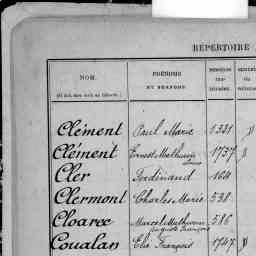 RÉPERTOIRE
NOM.
PRÉNOMS
ET SURNOMS
Clément Paul Marie 1331 »
Clément Ernest Mathurin 1757 »
Cler Ferdinand 164
Clermont Charles Marie 538
Cloarec Marcel Mathurin 586
Auguste François
Coualan Elie François 1747 »